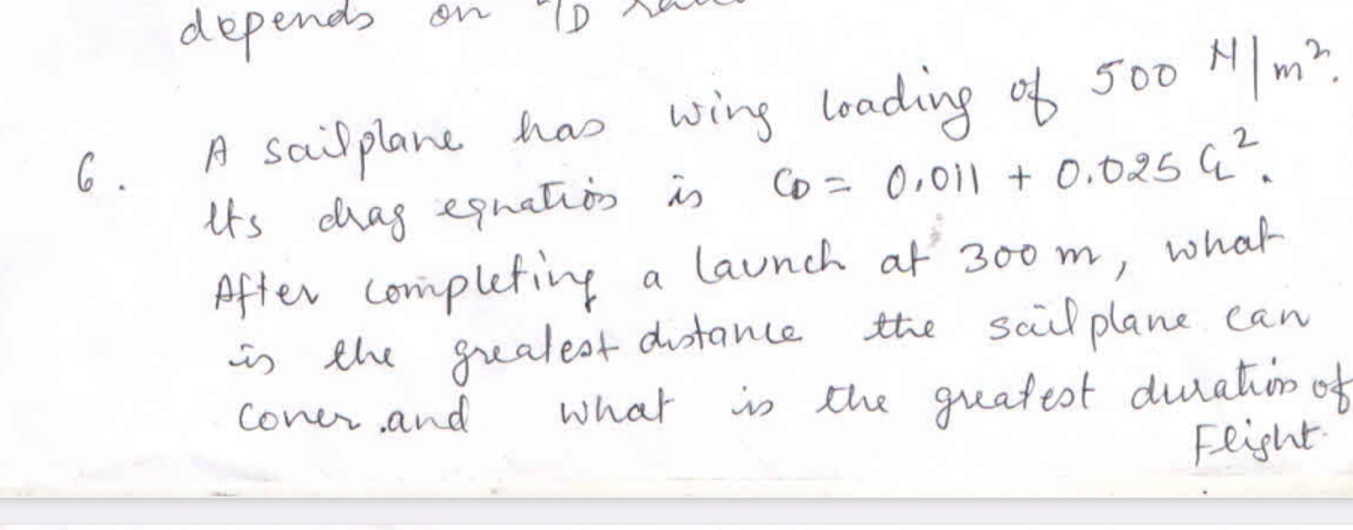 depends on L/D
6. A sailplane has wing loading of 500 N/m².
Its drag equation is CD = 0.011 + 0.025 CL².
After completing a launch at 300 m, what
is the greatest distance the sailplane can
cover .and what is the greatest duration of
Flight.